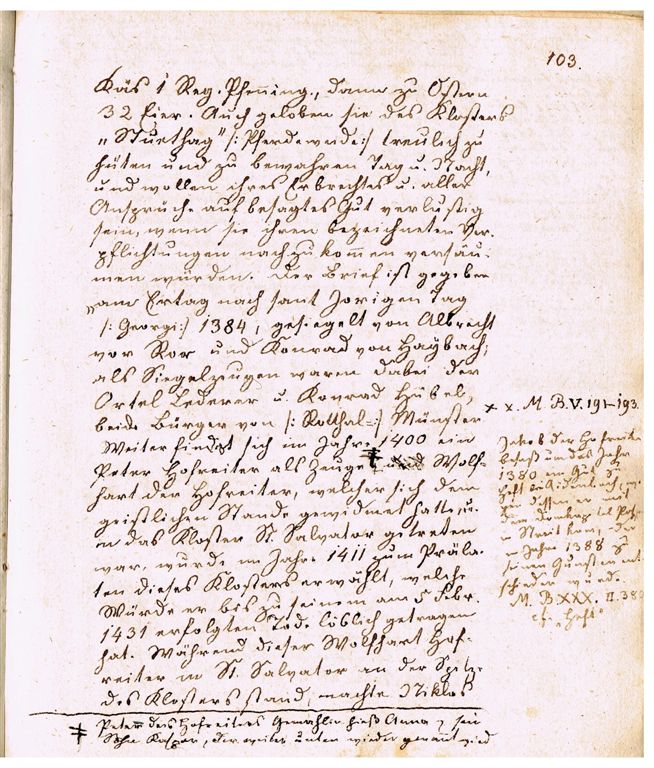 103.
Käs 1 Reg. Pfenning., dann zu Ostern
32 Eier. Auch geloben sie des Klosters
„Sturthag" /: Pferdewende :/ treulich zu
hüten und zu bewahren Tag u. Nacht,
und wollen ihres Erbrechtes u. aller
Ansprüche auf besagtes Gut verlustig
sein, wenn sie ihren bezeichneten Ver-
pflichtungen nachzukommen versäu-
men würden. Der Brief ist gegeben
„am Ertag nach sant Jorigen Tag
/: Georgi :/ 1384, gesiegelt von Albrecht
von Ror und Konrad von Haybach;
als Siegelzeugen waren dabei der
Ortel Lederer u. Konrad Hübel,
beide Bürger von /: Rotthal= :/ Münster
Weiter findet sich im Jahre 1400 ein
Peter Hofreiter als Zeuge ‡ und Wolf-
hart der Hofreiter, welcher sich dem
geistlichen Stande gewidmet hatte, u.
in das Kloster St. Salvator getreten
war, wurde im Jahre 1411 zum Präla-
ten dieses Klosters erwählt, welche
Würde er bis zu seinem am 5 Febr.
1431 erfolgten Tod löblich getragen
hat. Während dieser Wolfhart Hof-
reiter in St. Salvator an der Spitze
des Klosters stand, machte Niklos
x x. M. B. V. 191-193.
Jakob der Hofreiter
besaß um das Jahr
1380 ein Gut z
Heft
dessen er mit
dem
im Jahre 1388 zu
seinen Gunsten ent-
schieden wurde.
M. B. XXX. II. 380
cf. „Heft"
‡ Peter des Hofreiters Gemahlin hieß Anna, sein
Sohn Kaspar, der weiter unten wieder genannt wird